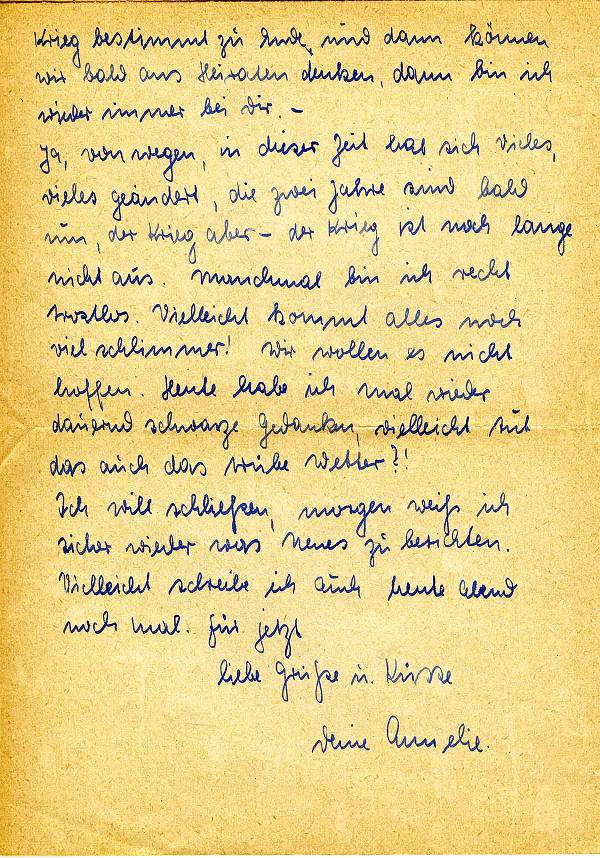 Krieg bestimmt zu Ende, und dann können
wir bald ans Heiraten denken, dann bin ich
wieder immer bei Dir. –
Ja, von wegen, in dieser Zeit hat sich vieles,
vieles geändert, die zwei Jahre sind bald
um, der Krieg aber – der Krieg ist noch lange
nicht aus. Manchmal bin ich recht
trostlos. Vielleicht kommt alles noch
viel schlimmer! Wir wollen es nicht
hoffen. Heute habe ich mal wieder
dauernd schwarze Gedanken, vielleicht tut
das auch das trübe Wetter?!
Ich will schließen, morgen weiß ich
sicher wieder was Neues zu berichten.
Vielleicht schreibe ich auch heute Abend
noch mal. Für jetzt
liebe Grüße u. Küsse
Deine Annelie.